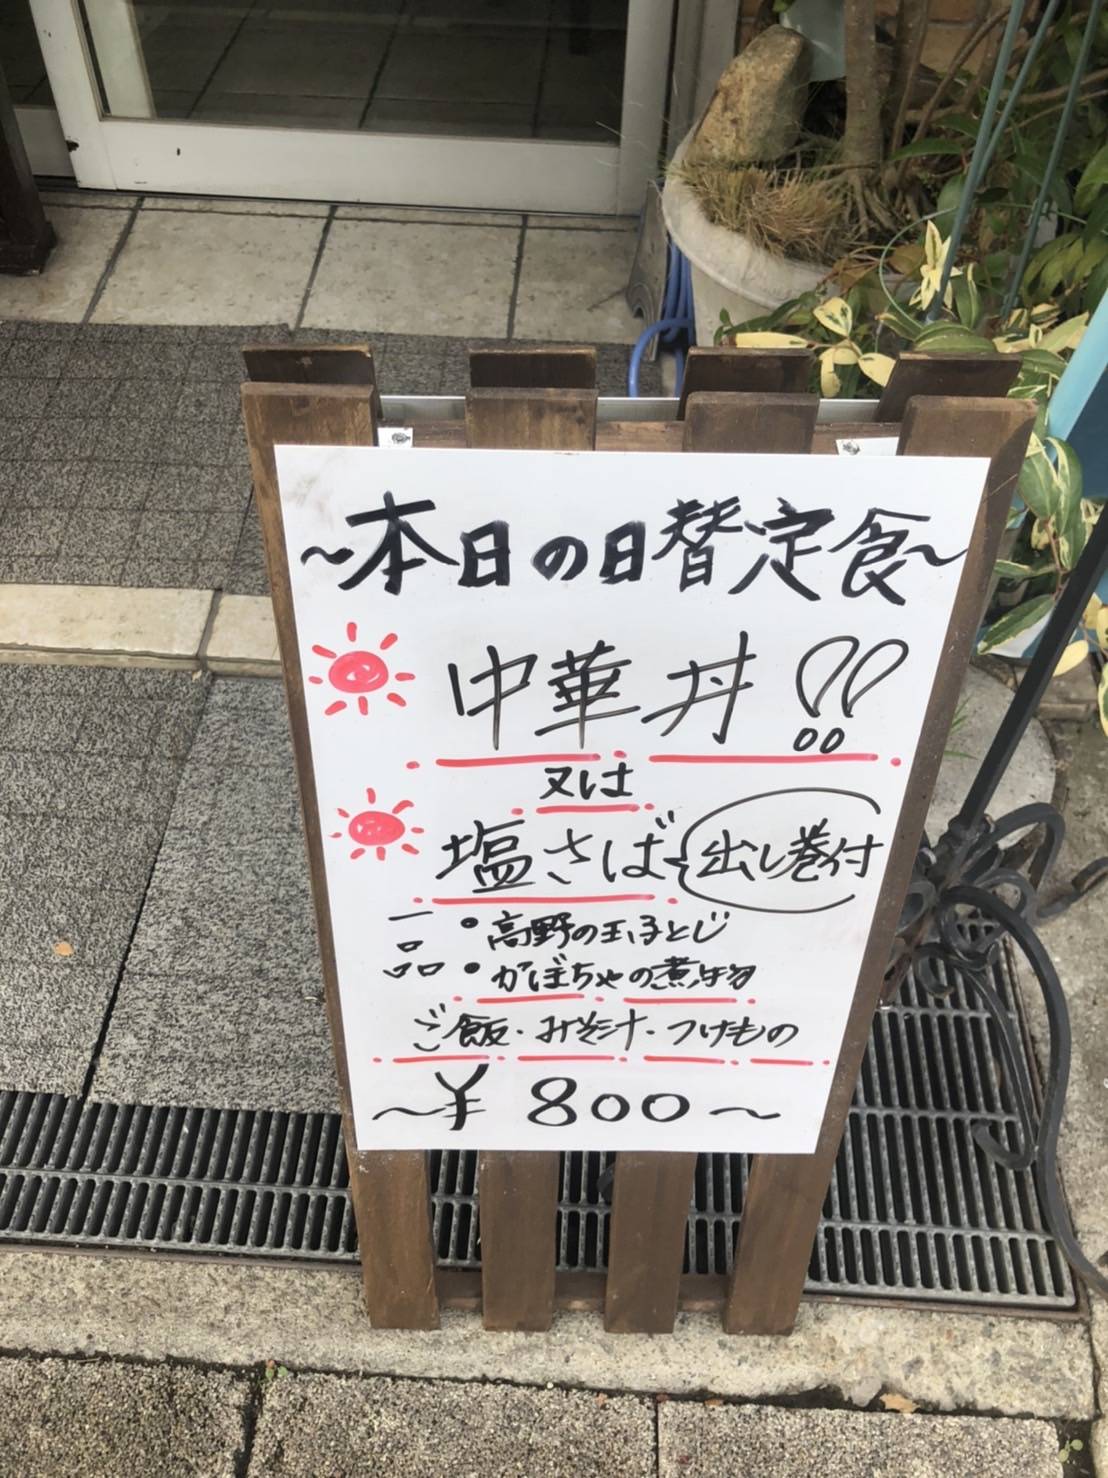 ～本日の日替定食～
中華丼!!
又は
塩さば 出し巻付
一品
・高野の玉子とじ
・かぼちゃの煮物
ご飯・みそ汁・つけもの
～¥800～